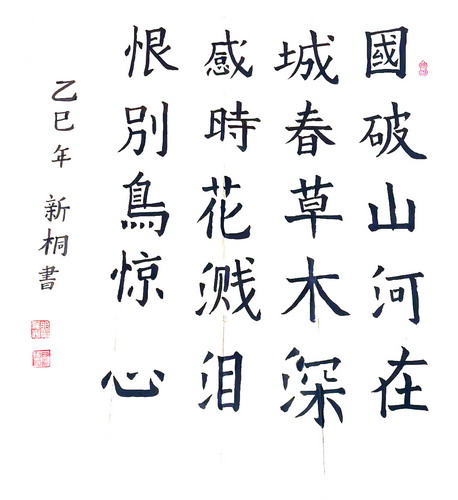 國破山河在
城春草木深
感時花溅泪
恨別鳥惊心
乙巳年 新桐書